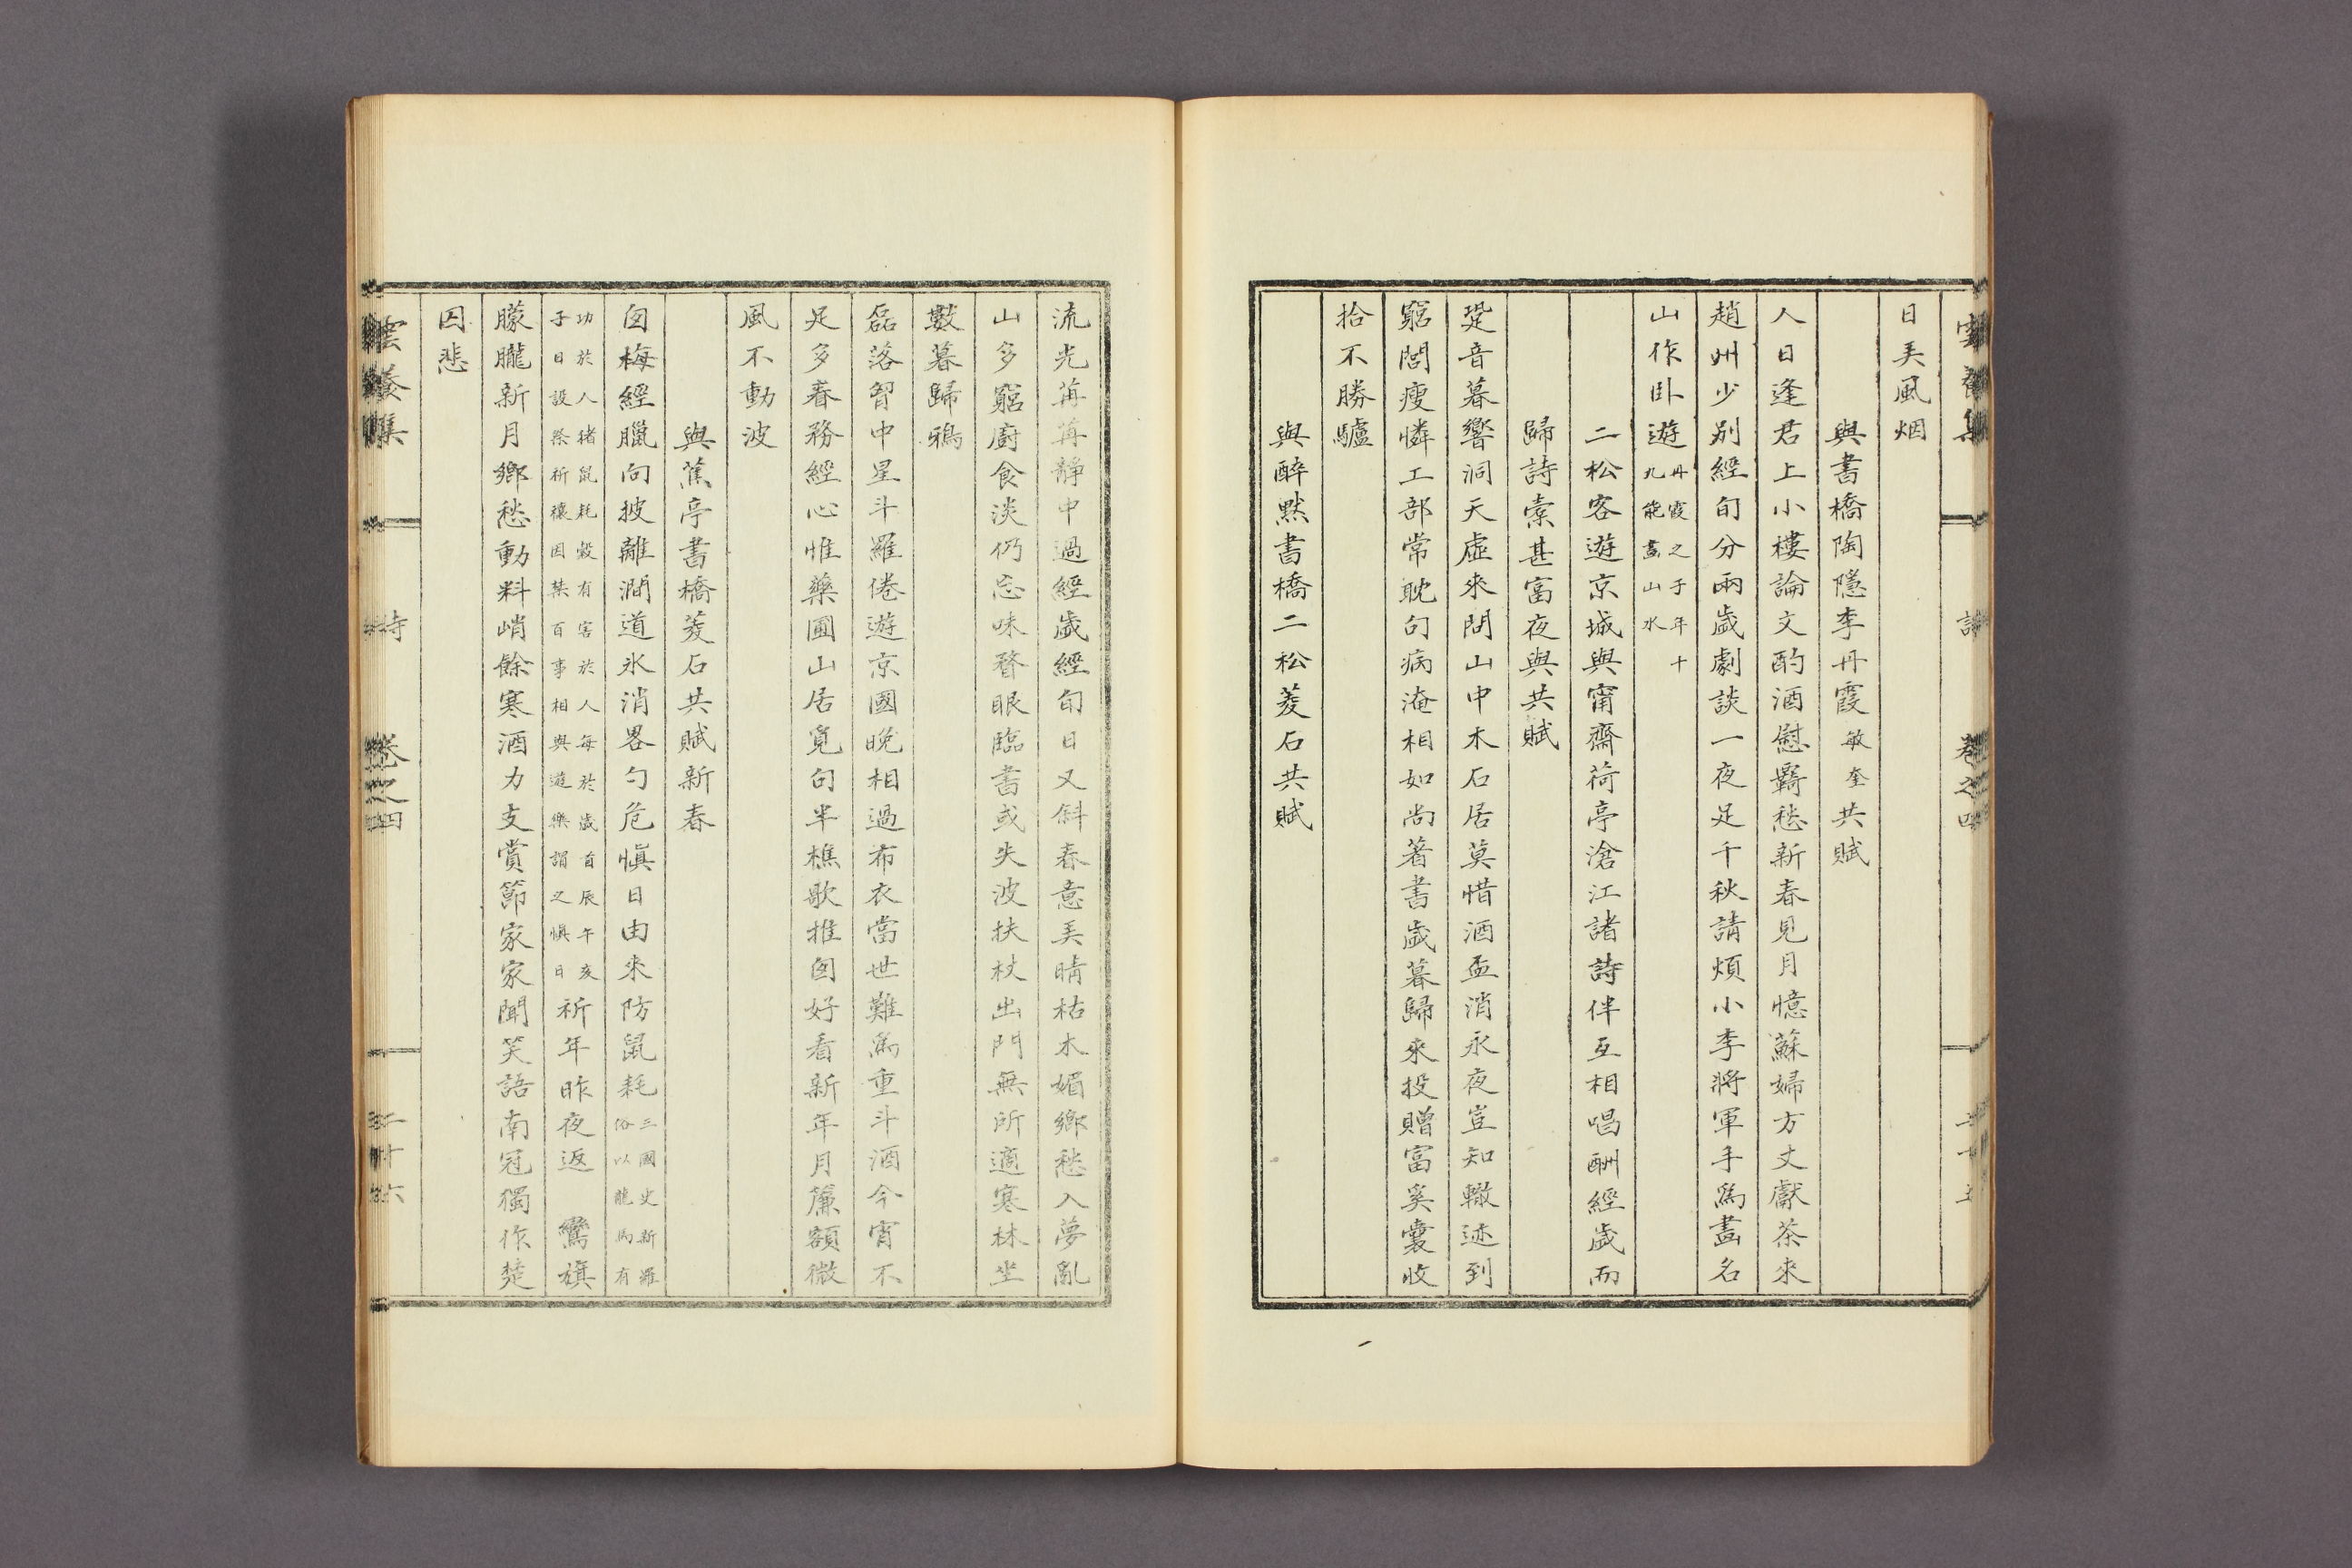 雲養集 詩 卷之四 二十五
日美風烟
與書橋陶隱李丹霞敏奎共賦
人日逢君上小樓論文酌酒慰羇愁新春見月憶蘇婦方丈獻茶來
趙州少別經旬分兩歲劇談一夜足千秋請煩小李將軍手爲畵名
山作卧遊丹霞之子年十九能畵山水
二松客遊京城與甯齋荷亭滄江諸詩伴互相唱酬經歲而
歸詩槖甚富夜與共賦
跫音暮響洞天虛來問山中木石居莫惜酒盃消永夜豈知轍迹到
窮閭瘦憐工部常耽句病淹相如尚著書歲暮歸來投贈富奚囊收
拾不勝驢
與醉默書橋二松菱石共賦
流光苒苒靜中過經歲經旬日又斜春意美晴枯木媚鄉愁入夢亂
山多窮廚食淡仍忘味瞀眼臨書或失波扶杖出門無所適寒林坐
數暮歸鴉
磊落胷中星斗羅倦遊京國晚相過布衣當世難爲重斗酒今宵不
足多春務經心惟藥圃山居覓句半樵歌推囪好看新年月簾額微
風不動波
與蕉亭書橋菱石共賦新春
囪梅經臘向披離澗道氷消畧勺危愼日由來防鼠耗三國史新羅俗以龍爲有
功於人猪鼠耗穀有害於人每於歲首辰午亥子日設祭祈禳因禁百事相與遊樂謂之愼日祈年昨夜返 鸞旗
朦朧新月鄉愁動料峭餘寒酒力支賞節家家聞笑語南冠獨作楚
囚悲
雲養集 詩 卷之四 二十六